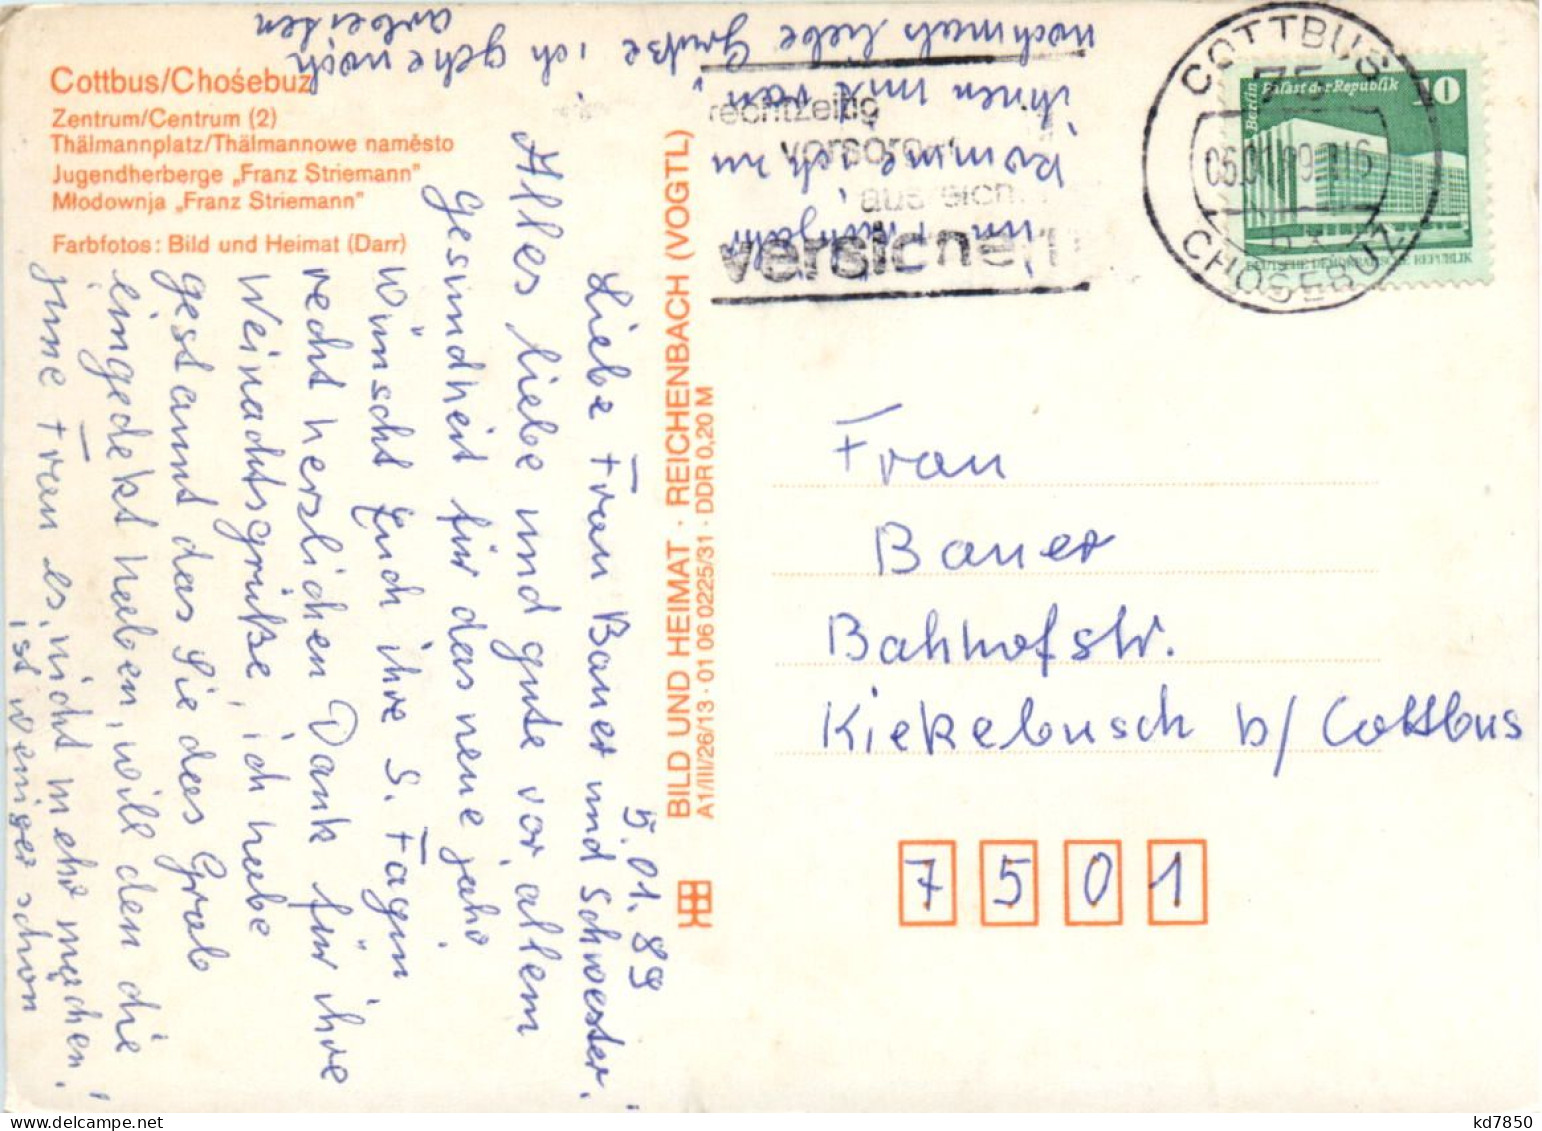 Cottbus/Chośebuz
Zentrum/Centrum (2)
Thälmannplatz/Thälmannowe naměsto
Jugendherberge „Franz Striemann"
Młodownja „Franz Striemann"
Farbfotos: Bild und Heimat (Darr)
5.01.89
Liebe Frau Bauer und Schwester!
Alles liebe und gute vor allem
Gesundheit für das neue jahr
wünscht Euch ihre S. Fagin
recht herslichen Dank für ihre
Weinachtsgrüße, ich habe
gestannt das Sie das Grab
eingedekt haben, will den die
june Frau es nicht mehr machen!
ist weniger schon
im Frühjahr
komme ich zu
ihnen mit ran,
nochmals liebe Grüße, ich gehe noch
arbeiten
BILD UND HEIMAT · REICHENBACH (VOGTL)
A1/III/26/13 · 01 06 0225/31 · DDR 0,20 M
rechtzeitig
vorsorgen
ausreich.
versichern
COTTBUS
75
CHOŚEBUZ
Berlin Palast der Republik 10
DEUTSCHE DEMOKRATISCHE REPUBLIK
Frau
Bauer
Bahnhofstr.
Kiekebusch b/ Cottbus
7 5 0 1
kd7850